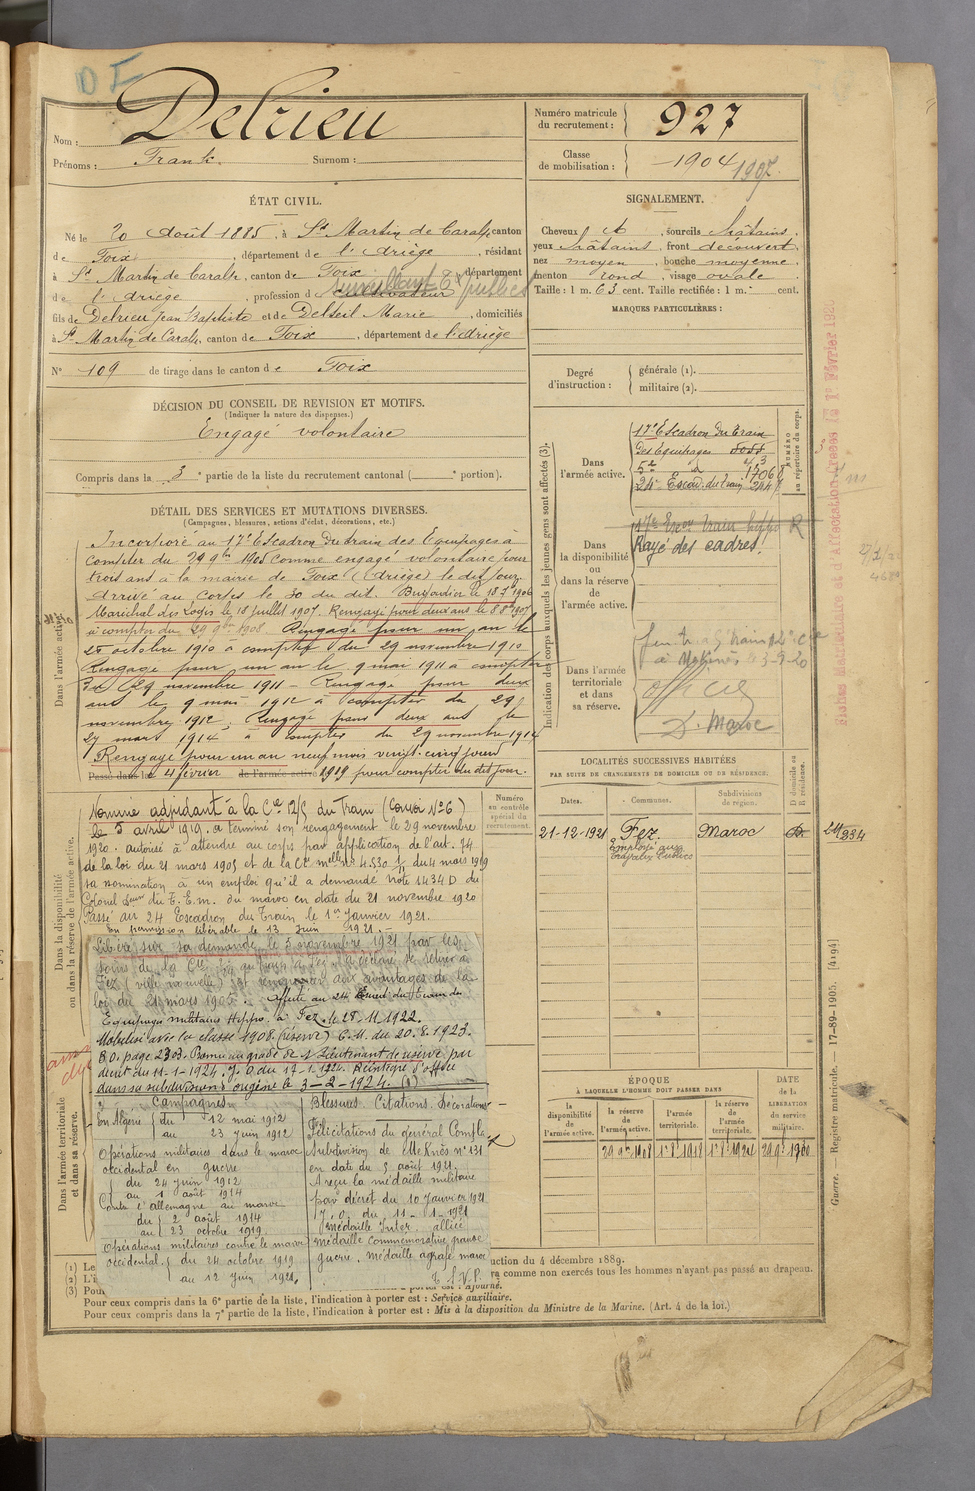 Nom : Delrieu
Prénoms : Frank. Surnom :
Numéro matricule du recrutement : 927
Classe de mobilisation : 1904 1907.
ÉTAT CIVIL.
Né le 20 août 1885, à St Martin de Caralp, canton
de Foix, département de l'Ariège, résidant
à St Martin de Caralp, canton de Foix, département
de l'Ariège, profession de cultivateur surveillant Tx publics
fils de Delrieu Jean Baptiste et de Delseil Marie, domiciliés
à St Martin de Caralp, canton de Foix, département de l'Ariège
N° 109 de tirage dans le canton de Foix
SIGNALEMENT.
Cheveux , sourcils châtains,
yeux châtains, front découvert,
nez moyen, bouche moyenne,
menton rond, visage ovale
Taille : 1 m. 63 cent. Taille rectifiée : 1 m. cent.
MARQUES PARTICULIÈRES :
Degré d'instruction : générale (1).
militaire (2).
DÉCISION DU CONSEIL DE REVISION ET MOTIFS.
(Indiquer la nature des dispenses.)
Engagé volontaire
Compris dans la 3e partie de la liste du recrutement cantonal ( e portion).
DÉTAIL DES SERVICES ET MUTATIONS DIVERSES.
(Campagnes, blessures, actions d'éclat, décorations, etc.)
Dans l'armée active.
Incorporé au 17e Escadron du train des Equipages à
compter du 29 9bre 1905 comme engagé volontaire pour
trois ans à la mairie de Foix (Ariège) le dit jour.
Arrivé au corps le 30 du dit. Brigadier le 18 7bre 1906
Maréchal des Logis le 18 juillet 1907. Rengagé pour deux ans le 8 8bre 1907
à compter du 29 9bre 1908. Rengagé pour un an le
25 octobre 1910 à compter du 29 novembre 1910
Rengagé pour un an le 9 mai 1911 à compter
du 29 novembre 1911 - Rengagé pour deux
ans le 9 mai 1912 à compter du 29
novembre 1912. Rengagé pour deux ans le
27 mars 1914 à compter du 29 novembre 1914
Rengagé pour un an neuf mois vingt-cinq jours
Passé dans le 4 février de l'armée active 1919 pour compter du dit jour.
Dans la disponibilité ou dans la réserve de l'armée active.
Nommé adjudant à la Cie 12/5 du Train (Convoi N°6)
le 5 avril 1919. a terminé son rengagement le 29 novembre
1920. Autorisé à attendre au corps par application de l'art. 74
de la loi du 21 mars 1905 et de la Cre melle n° 4.530 1/11 du 4 mars 1919
sa nomination à un emploi qu'il a demandé note 1434 D du
Colonel Dteur du T.E.M. du maroc en date du 21 novembre 1920
Passé au 24 Escadron du Train le 1er Janvier 1921.
En permission libérable le 13 Juin 1921.-
Libéré sur sa demande le 5 novembre 1921 par les
soins de la Cie
Fez (ville nouvelle) et renoncer aux avantages de la
loi du 21 mars 1905. Affecté au 24 Escad. du train des
Equipages militaires Hippo. à Fez. le 28.11.1922.
Mobilisé avec la classe 1908. (réserve) C.M. du 20.8.1923.
B.O. page 2303. Promu au grade de S/Lieutenant de réserve par
décret du 11-1-1924. J.O du 17-1-1924. Réintégré d'office
dans sa subdivision d'origine le 3-2-1924. (1)
Dans l'armée territoriale et dans sa réserve.
Campagnes
En Algérie du 12 mai 1912
au 23 juin 1912
Opérations militaires dans le maroc
occidental en guerre
du 24 juin 1912
au 1 août 1914
Contre l'allemagne au maroc
du 2 août 1914
au 23 octobre 1919
Opérations militaires contre le maroc
occidental. du 24 octobre 1919
au 12 Juin 1921.
Blessures. Citations. Décorations
Félicitations du général Comdt la
Subdivision de Meknès n° 131
en date du 5 août 1921.
A reçu la médaille militaire
par décret du 10 Janvier 1921
J.O. du 11-1-1921
médaille Inter. alliée
médaille commémorative grande
guerre. médaille agrafe maroc
T.S.V.P.
Numéro au contrôle spécial du recrutement.
Indication des corps auxquels les jeunes gens sont affectés (3).
NUMÉRO au répertoire du corps.
Dans l'armée active.
17e Escadron du train
des Equipages
5e d° 1706
24e Escad. du train 244
Dans la disponibilité ou dans la réserve de l'armée active.
17e Escor train hippo R
Rayé des cadres.
Dans l'armée territoriale et dans sa réserve.
à Meknès le 3-9-20
officier
D. Maroc
Fiches Matriculaire et d'Affectation créées le 1er Février 1926
LOCALITÉS SUCCESSIVES HABITÉES
PAR SUITE DE CHANGEMENTS DE DOMICILE OU DE RÉSIDENCE.
Dates. Communes. Subdivisions de région. D domicile ou R résidence.
21-12-1921 Fez. Maroc R. 24/234
Employé aux
Travaux Publics
ÉPOQUE
À LAQUELLE L'HOMME DOIT PASSER DANS
la disponibilité de l'armée active. la réserve de l'armée active. l'armée territoriale. la réserve de l'armée territoriale.
DATE de la LIBÉRATION du service militaire.
29 9bre 1908 1er 8bre 1918 1er 8bre 1924 29 9bre 1930
Guerre. — Registre matricule. — 17-89-1905. [4194]
(1) Le
uction du 4 décembre 1889.
(2) L'i
ra comme non exercés tous les hommes n'ayant pas passé au drapeau.
(3) Pour
Ajourné.
Pour ceux compris dans la 6e partie de la liste, l'indication à porter est : Service auxiliaire.
Pour ceux compris dans la 7e partie de la liste, l'indication à porter est : Mis à la disposition du Ministre de la Marine. (Art. 4 de la loi.)